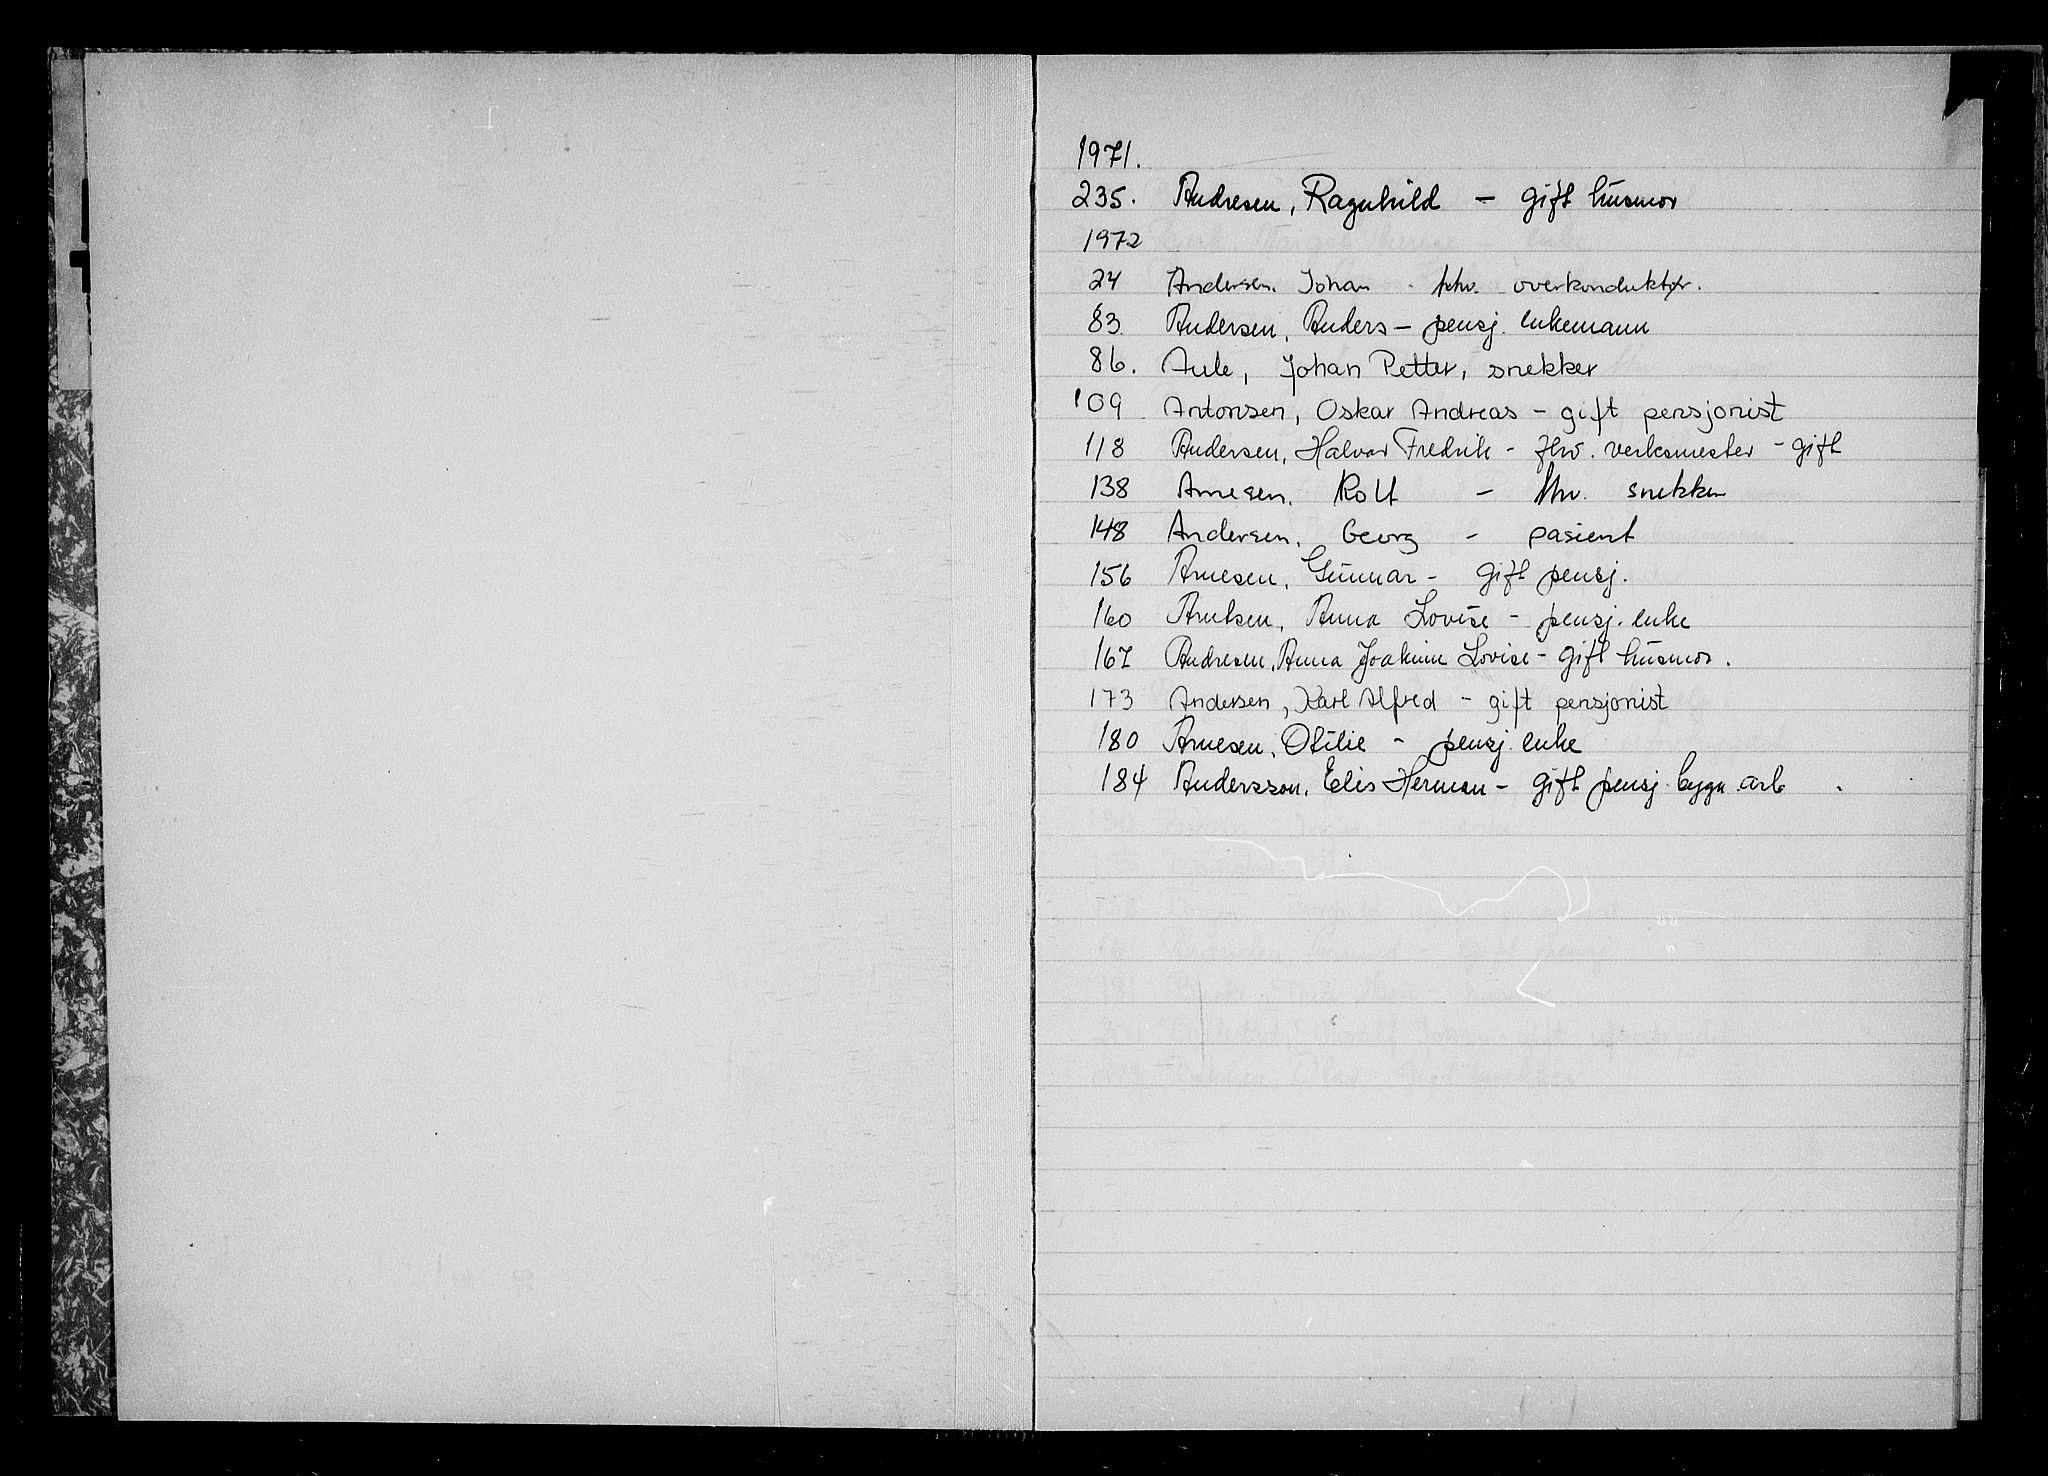 1971.
235. Andresen, Ragnhild - gift husmor
1972
24 Andersen, Johan - fhv. overkonduktør.
83 Andersen, Anders - pensj. enkemann
86. Aule, Johan Petter, snekker
109 Antonsen, Oskar Andreas - gift pensjonist
118 Andersen, Halvor Fredrik - fhv. verksmester - gift
138 Arnesen, Rolf - fhv. snekker
148 Andersen, Georg - pasient
156 Arnesen, Gunnar - gift pensj.
160 Arntsen, Anna Lovise - pensj. enke
167 Andresen, Anna Joakime Lovise - gift husmor.
173 Andersen, Karl Alfred - gift pensjonist
180 Arnesen, Otilie - pensj. enke
184 Andersson, Elis Herman - gift pensj. bygn. arb.